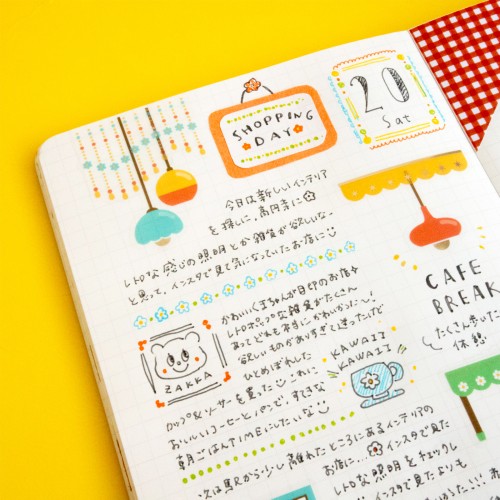 SHOPPING
DAY
20
Sat
今日は新しいインテリア
を探しに、高円寺に
レトロな感じの照明とか雑貨が欲しいな〜
と思って、インスタで見て気になっていたお店に
かわいいくまちゃんが目印のお店
レトロポップな雑貨がたくさん
あってどれも本当にかわいかったし!
欲しいものがありすぎて迷ったけど
ひとめぼれした
カップ&ソーサーを買った これに
おいしいコーヒーとパンで、すてきな
朝ごはんTIMEにしたいな
ZAKKA
KAWAII
KAWAII
次は駅から少し離れたところにあるインテリアの
お店に… インスタで見た
レトロな照明をチェックし
インスタで見たよりも
CAFE
BREAK
たくさん歩いた
休憩